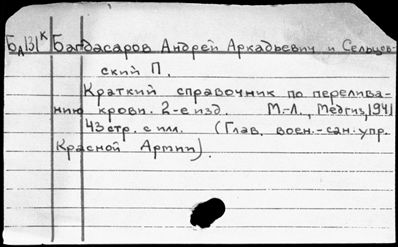 Бд131к Багдасаров Андрей Аркадьевич и Сельцов-
ский П.
Краткий справочник по перелива-
нию крови. 2-е изд. М.-Л., Медгиз, 1941
43 стр. с илл. (Глав. воен.-сан. упр.
Красной Армии).